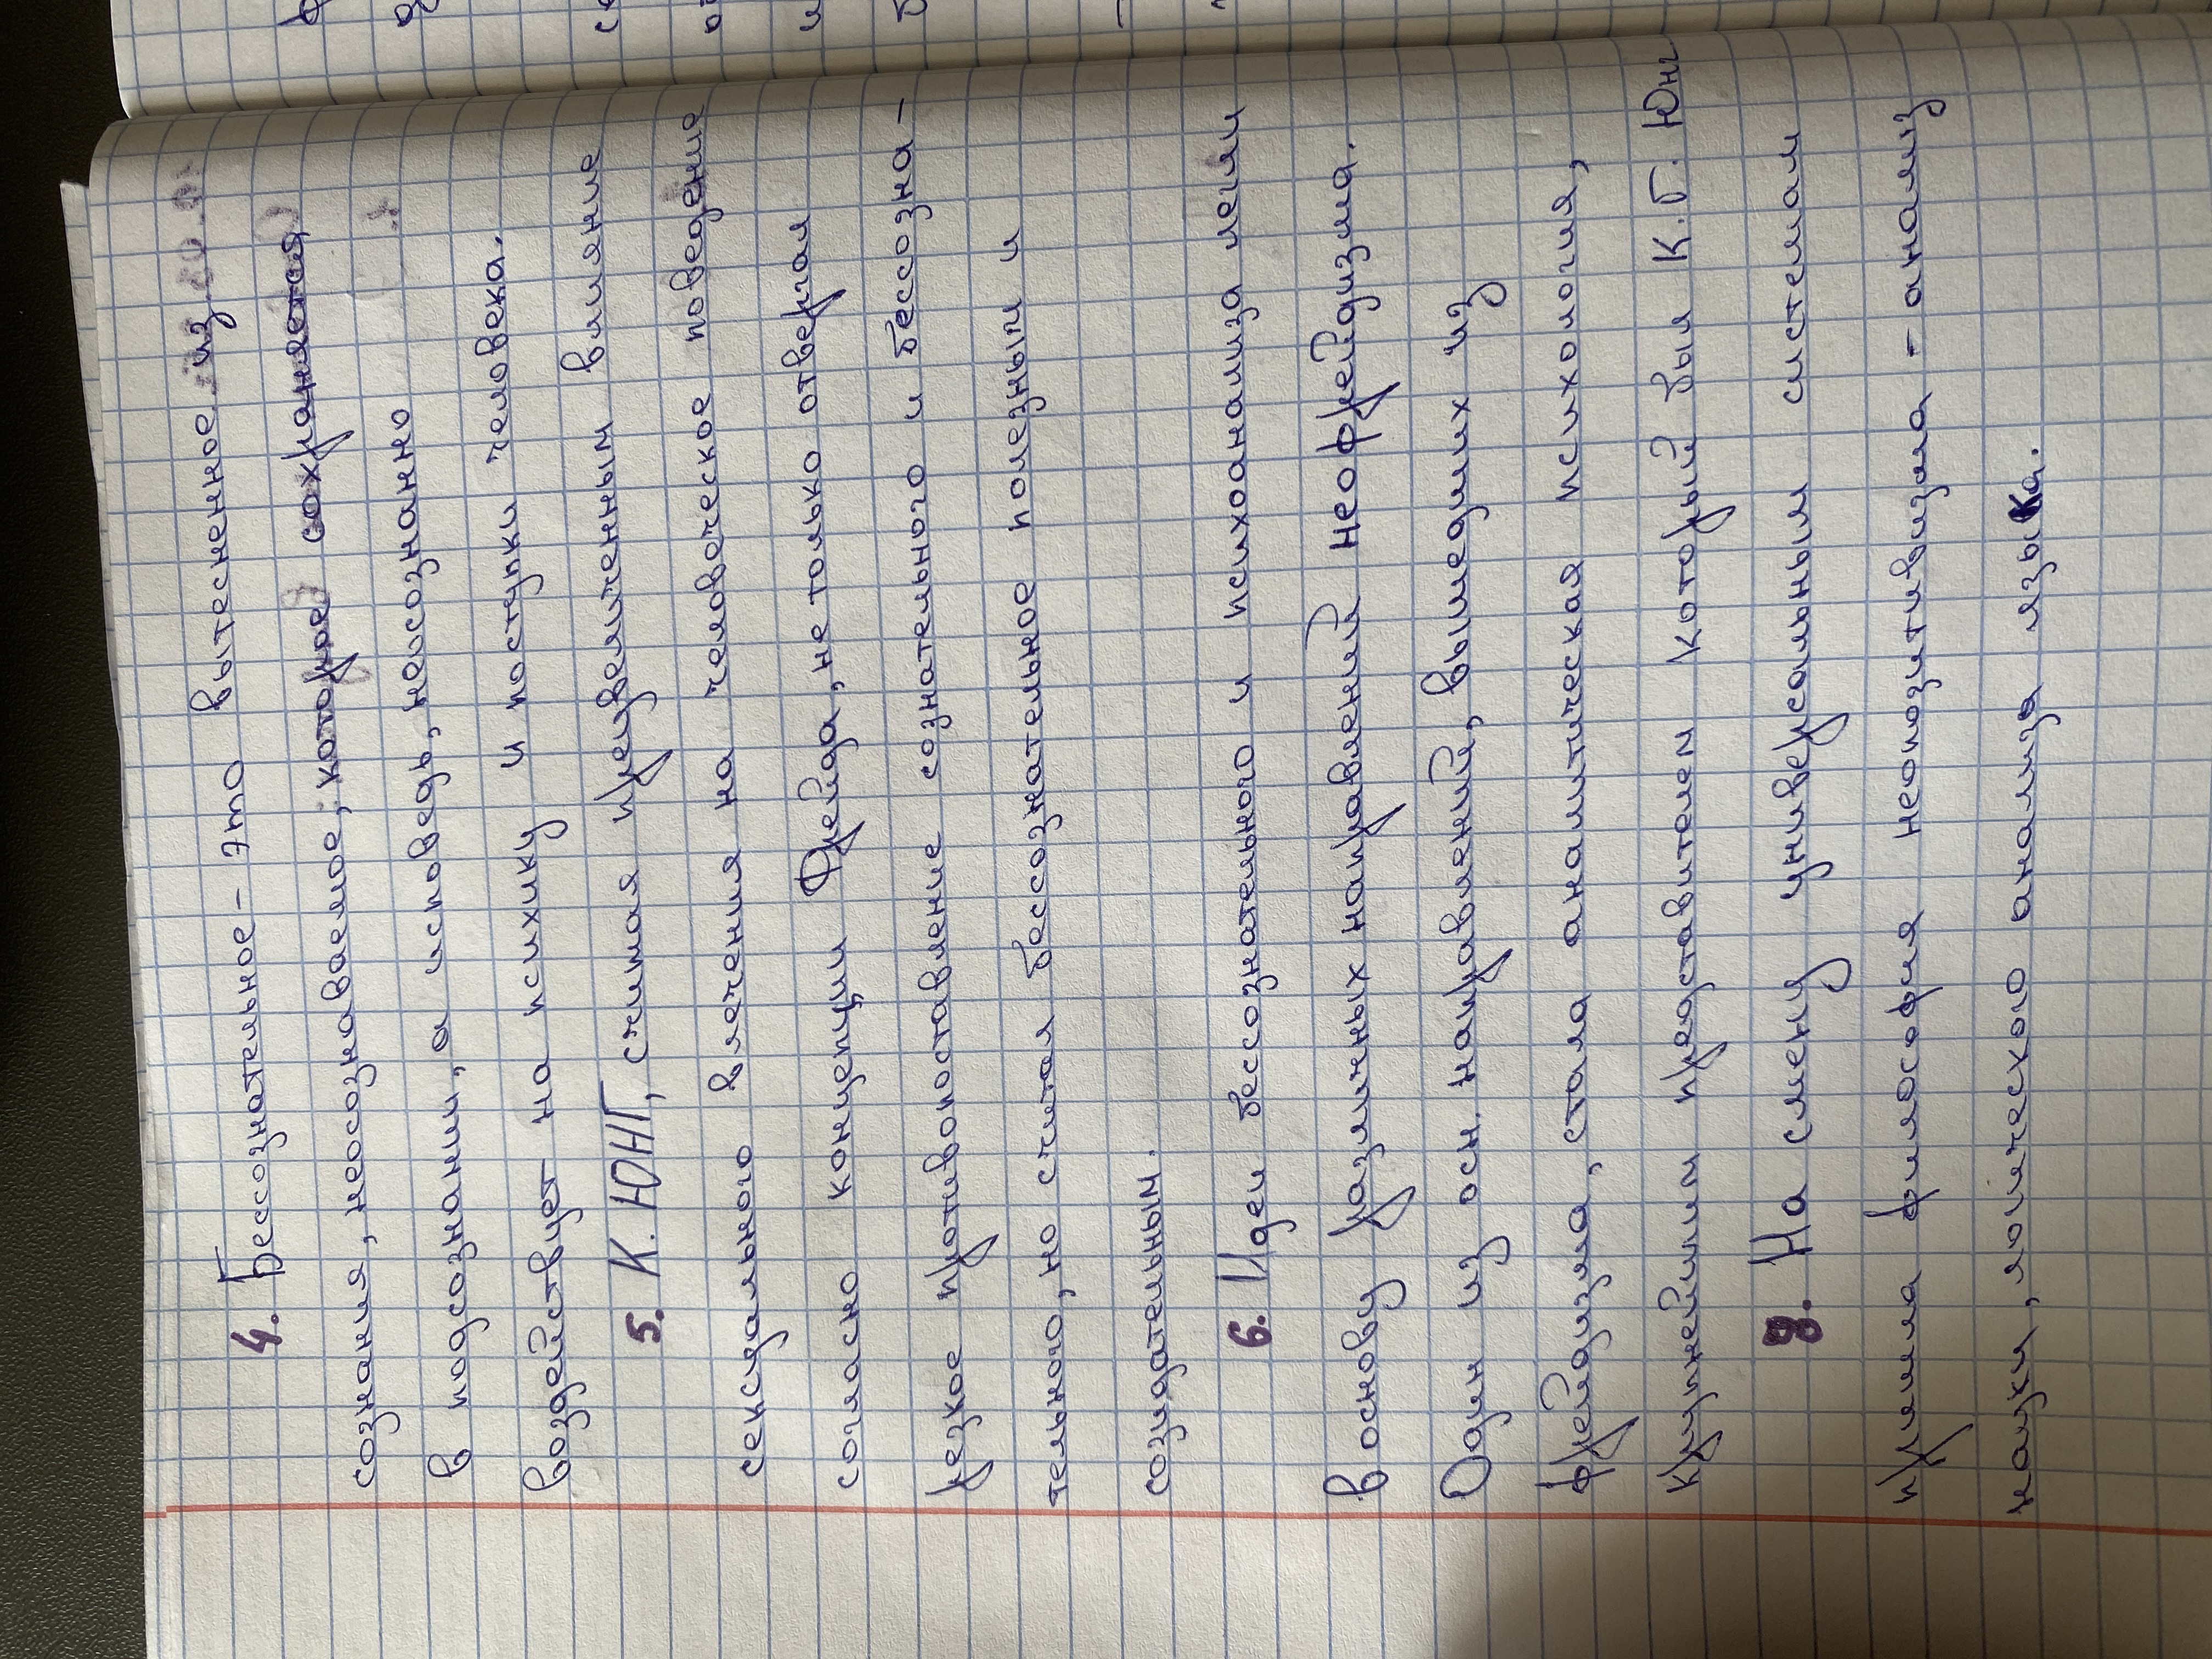 4. Бессознательное - это вытесненное из
сознания, неосознаваемое, которое сохраняется
в подсознании, а исповедь, неосознанно
воздействует на психику и поступки человека.
5. К. ЮНГ, считая преувеличенным влияние
сексуального влечения на человеческое поведение
согласно концепции Фрейда, не только отвергал
резкое противопоставление сознательного и бессозна-
тельного, но считал бессознательное полезным и
созидательным.
6. Идеи бессознательного и психоанализа легли
в основу различных направлений неофрейдизма.
Один из осн. направлений, вышедших из
фрейдизма, стала аналитическая психология,
крупнейшим представителем который был К.Г. Юнг
На смену универсальным системам
пришла философия неопозитивизма - анализ
науки, логического анализа языка.